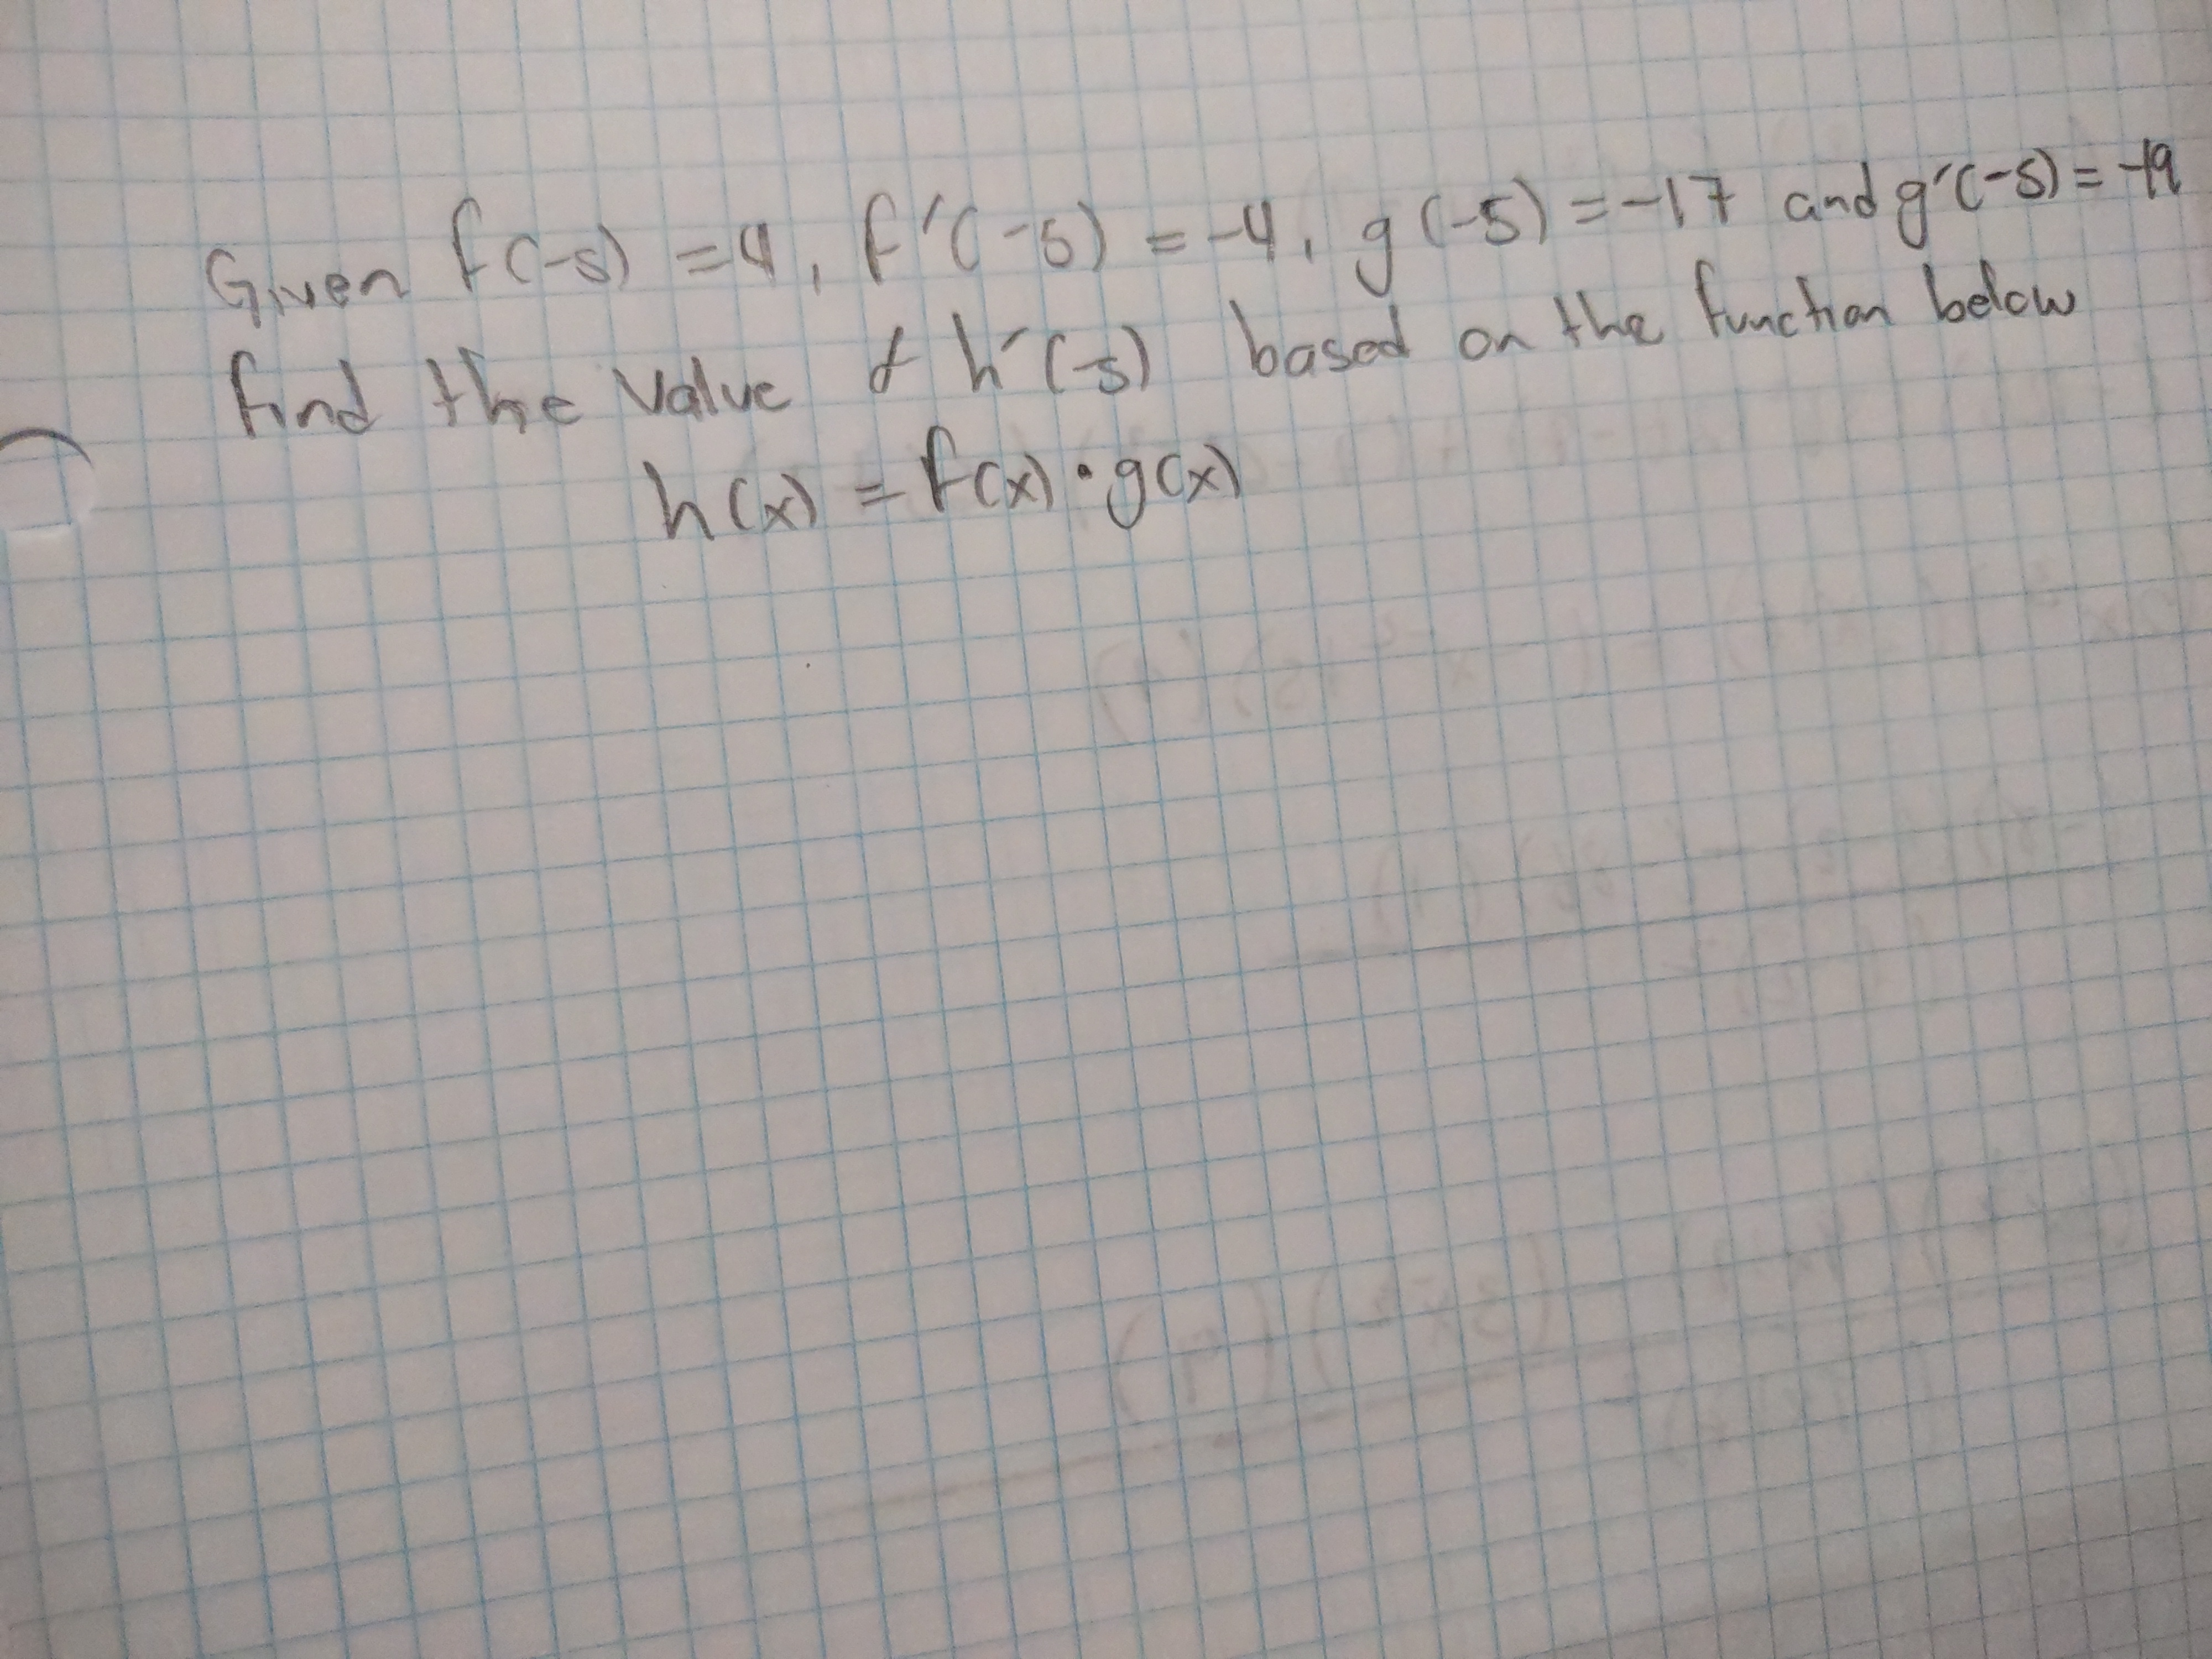 Given f(-5) = 4, f'(-5) = -4, g(-5) = -17 and g'(-5) = -19
find the value of h'(-5) based on the function below
h(x) = f(x) · g(x)